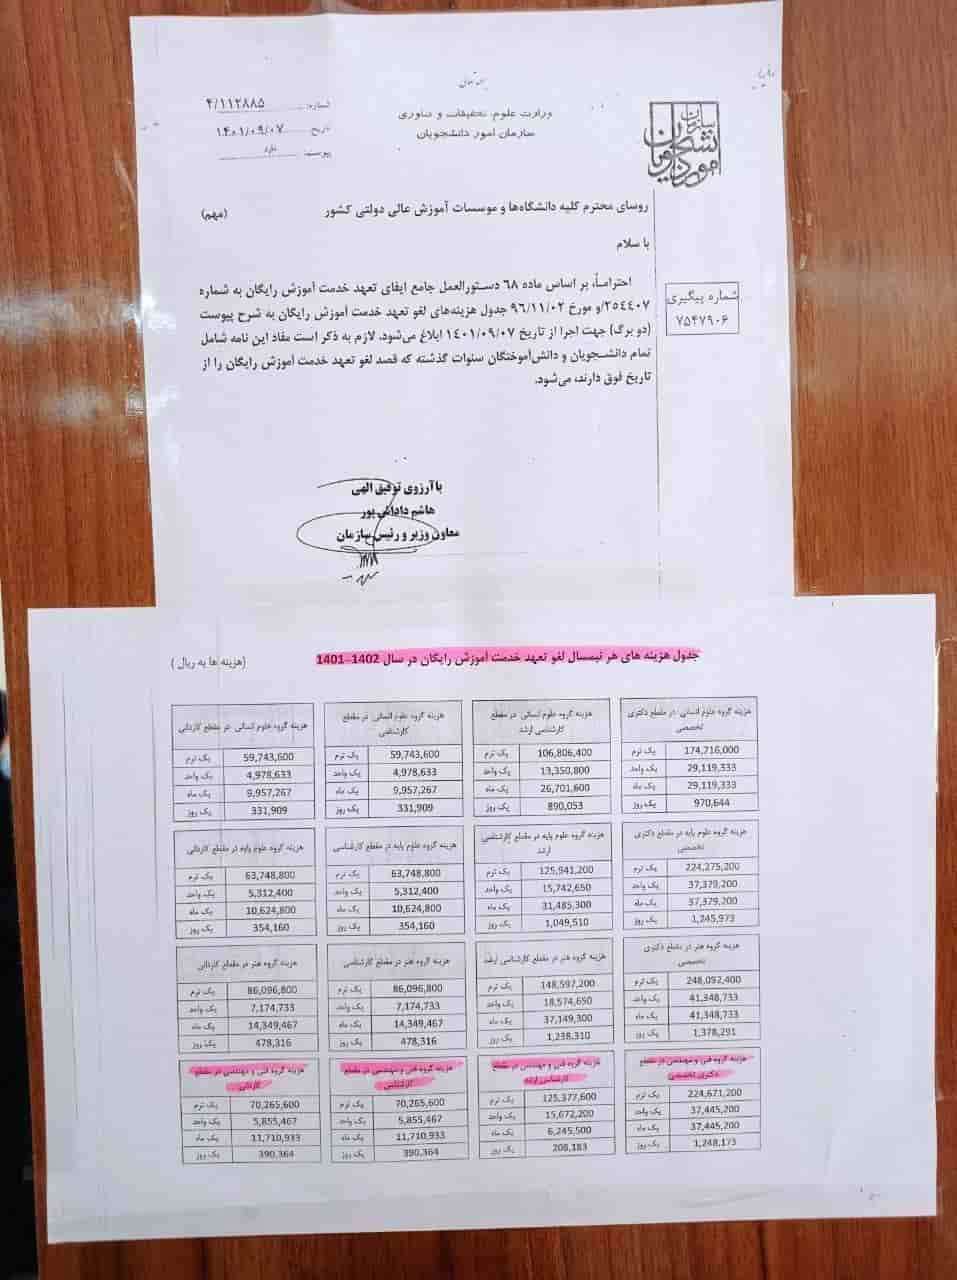 بسمه تعالی
وزارت علوم، تحقیقات و فناوری
سازمان امور دانشجویان
سازمان امور دانشجویان
شماره: ۴/۱۱۲۸۸۵
تاریخ: ۱۴۰۱/۰۹/۰۷
پیوست: دارد
روسای محترم کلیه دانشگاه‌ها و موسسات آموزش عالی دولتی کشور (مهم)
با سلام
احتراماً، بر اساس ماده ۶۸ دستورالعمل جامع ایفای تعهد خدمت آموزش رایگان به شماره
۲۵۴۴۰۷/و مورخ ۹۶/۱۱/۰۲ جدول هزینه‌های لغو تعهد خدمت آموزش رایگان به شرح پیوست
(دو برگ) جهت اجرا از تاریخ ۱۴۰۱/۰۹/۰۷ ابلاغ می‌شود. لازم به ذکر است مفاد این نامه شامل
تمام دانشجویان و دانش‌آموختگان سنوات گذشته که قصد لغو تعهد خدمت آموزش رایگان را از
تاریخ فوق دارند، می‌شود.
شماره پیگیری
۷۵۴۷۹۰۶
با آرزوی توفیق الهی
هاشم داداش پور
معاون وزیر و رئیس سازمان
جدول هزینه های هر نیمسال لغو تعهد خدمت آموزش رایگان در سال 1402–1401 (هزینه ها به ریال)
هزینه گروه علوم انسانی در مقطع دکتری تخصصی
یک ترم 174,716,000
یک واحد 29,119,333
یک ماه 29,119,333
یک روز 970,644
هزینه گروه علوم انسانی در مقطع کارشناسی ارشد
یک ترم 106,806,400
یک واحد 13,350,800
یک ماه 26,701,600
یک روز 890,053
هزینه گروه علوم انسانی در مقطع کارشناسی
یک ترم 59,743,600
یک واحد 4,978,633
یک ماه 9,957,267
یک روز 331,909
هزینه گروه علوم انسانی در مقطع کاردانی
یک ترم 59,743,600
یک واحد 4,978,633
یک ماه 9,957,267
یک روز 331,909
هزینه گروه علوم پایه در مقطع دکتری تخصصی
یک ترم 224,275,200
یک واحد 37,379,200
یک ماه 37,379,200
یک روز 1,245,973
هزینه گروه علوم پایه در مقطع کارشناسی ارشد
یک ترم 125,941,200
یک واحد 15,742,650
یک ماه 31,485,300
یک روز 1,049,510
هزینه گروه علوم پایه در مقطع کارشناسی
یک ترم 63,748,800
یک واحد 5,312,400
یک ماه 10,624,800
یک روز 354,160
هزینه گروه علوم پایه در مقطع کاردانی
یک ترم 63,748,800
یک واحد 5,312,400
یک ماه 10,624,800
یک روز 354,160
هزینه گروه هنر در مقطع دکتری تخصصی
یک ترم 248,092,400
یک واحد 41,348,733
یک ماه 41,348,733
یک روز 1,378,291
هزینه گروه هنر در مقطع کارشناسی ارشد
یک ترم 148,597,200
یک واحد 18,574,650
یک ماه 37,149,300
یک روز 1,238,310
هزینه گروه هنر در مقطع کارشناسی
یک ترم 86,096,800
یک واحد 7,174,733
یک ماه 14,349,467
یک روز 478,316
هزینه گروه هنر در مقطع کاردانی
یک ترم 86,096,800
یک واحد 7,174,733
یک ماه 14,349,467
یک روز 478,316
هزینه گروه فنی و مهندسی در مقطع دکتری تخصصی
یک ترم 224,671,200
یک واحد 37,445,200
یک ماه 37,445,200
یک روز 1,248,173
هزینه گروه فنی و مهندسی در مقطع کارشناسی ارشد
یک ترم 125,377,600
یک واحد 15,672,200
یک ماه 6,245,500
یک روز 208,183
هزینه گروه فنی و مهندسی در مقطع کارشناسی
یک ترم 70,265,600
یک واحد 5,855,467
یک ماه 11,710,933
یک روز 390,364
هزینه گروه فنی و مهندسی در مقطع کاردانی
یک ترم 70,265,600
یک واحد 5,855,467
یک ماه 11,710,933
یک روز 390,364